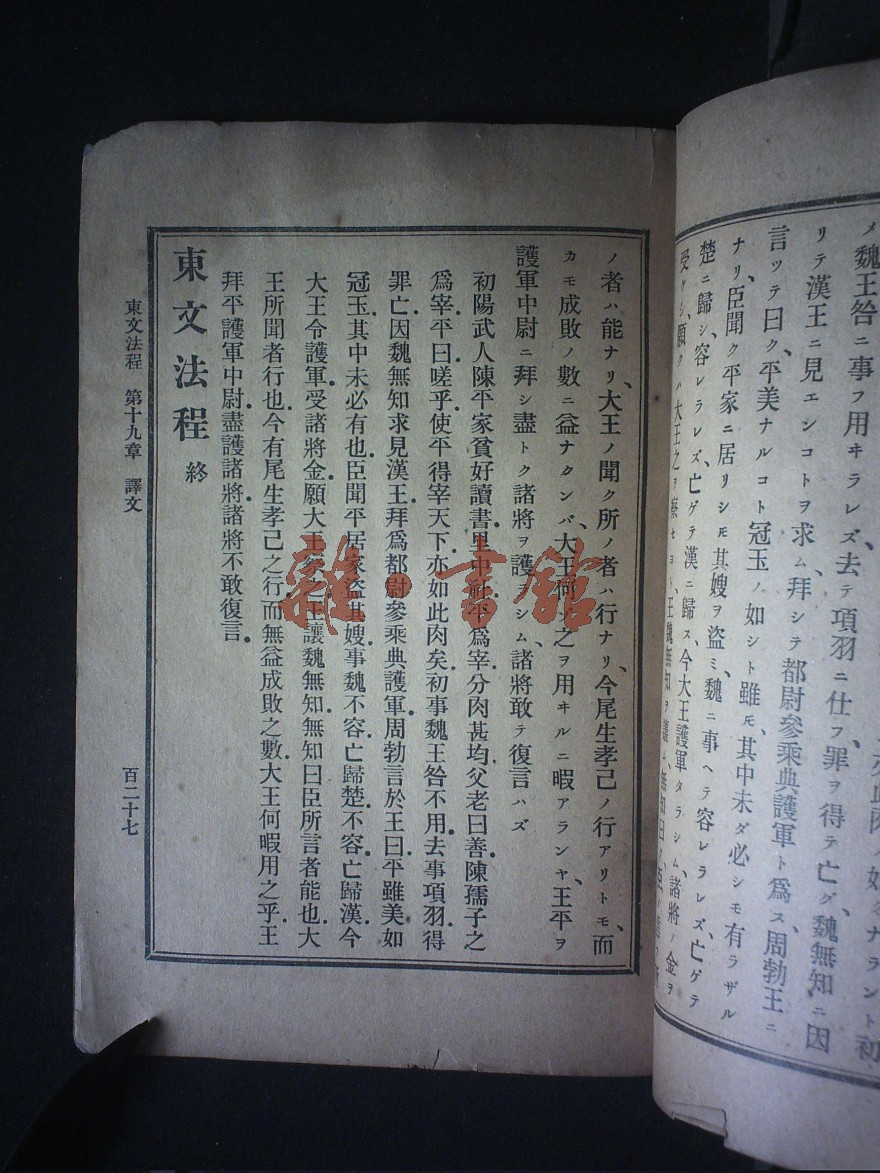 メ魏王咎ニ事フ用ヰラレズ去テ項羽ニ仕フ罪ヲ得テ亡グ、魏無知ニ因
リテ漢王ニ見エンコトヲ求ム、拜シテ都尉參乘典護軍ト爲ス、周勃王ニ
言ツテ曰ク、平美ナルコト冠玉ノ如シト雖𪜈、其中未ダ必シモ有ラザル
ナリ、臣聞ク平家ニ居リシ𪜈其嫂ヲ盜ミ、魏ニ事ヘテ容レラレズ、亡ゲテ
楚ニ歸シ、容レラレズ、亡ゲテ漢ニ歸ス、今大王護軍タラシム、諸將ノ金ヲ
受ケシ、願クハ大王之ヲ察セヨト、王魏無知ヲ讓ム、無知曰ク
ノ者ハ能ナリ、大王ノ聞ク所ノ者ハ行ナリ、今尾生孝己ノ行アリトモ、而
カモ成敗ノ數ニ益ナクンバ、大王何ンゾ之ヲ用ヰルニ暇アランヤ、王平ヲ
護軍中尉ニ拜シ盡トク諸將ヲ護セシム、諸將敢テ復言ハズ
初陽武人陳平家貧好讀書。里中社平爲宰。分肉甚均。父老曰善陳孺子之
爲宰。平曰嗟乎。使平得宰天下。亦如此肉矣。初事魏王咎不用。去事項羽得
罪亡。因魏無知求見漢王。拜爲都尉參乘典護軍。周勃言於王曰。平雖美如
冠玉。其中未必有也。臣聞平居家盜其嫂。事魏不容。亡歸楚。不容。亡歸漢。今
大王令護軍。受諸將金。願大王察之。王讓魏無知。無知曰。臣所言者能也。大
王所聞者行也。今有尾生孝己之行。而無益成敗之數。大王何暇用之乎。王
拜平護軍中尉。盡護諸將。諸將不敢復言。
東文法程 終
東文法程 第十九章 譯文 百二十七
雜·書館